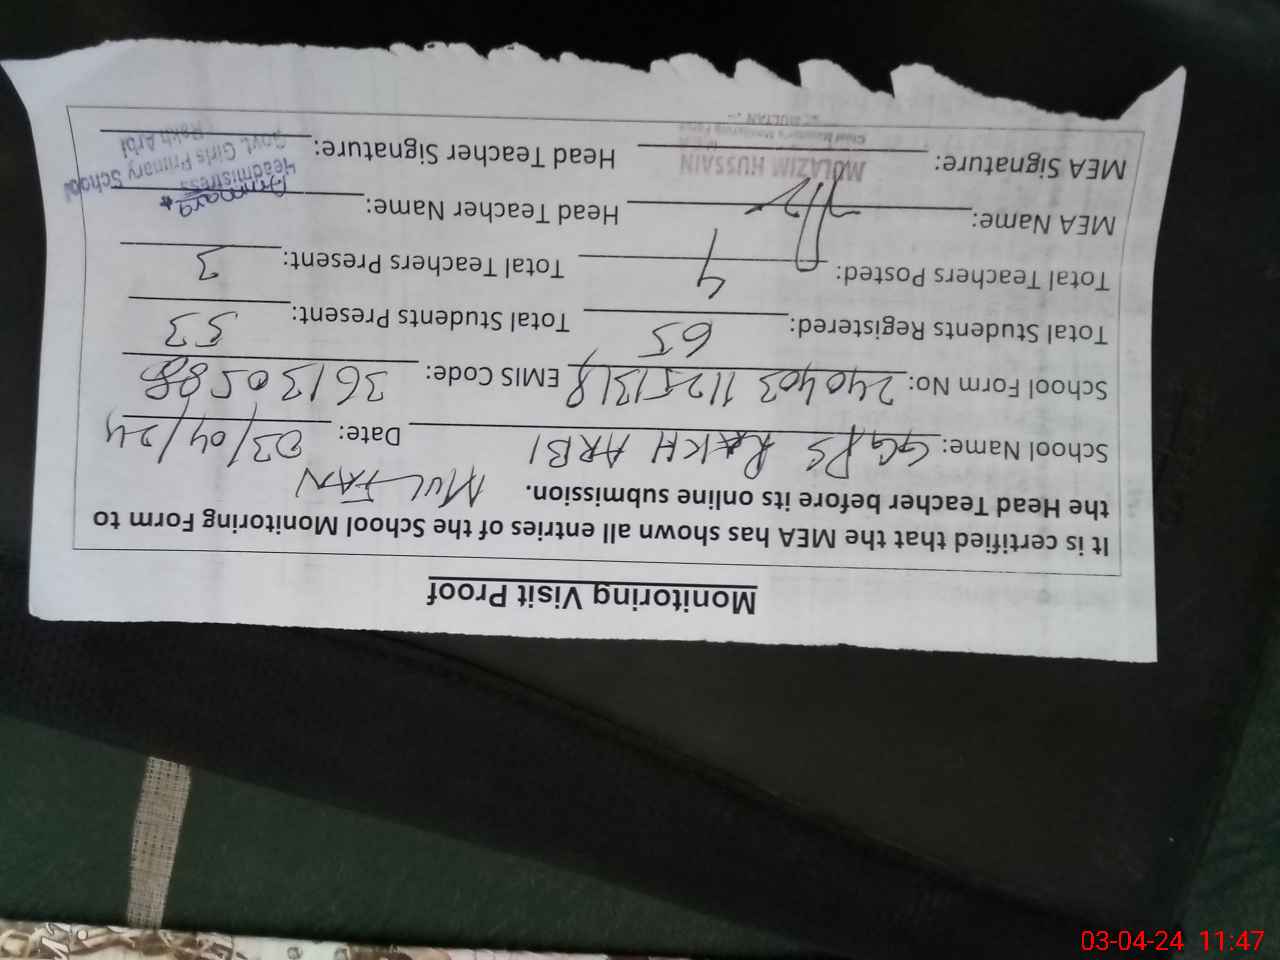 Monitoring Visit Proof
It is certified that the MEA has shown all entries of the School Monitoring Form to
the Head Teacher before its online submission. MULTAN
School Name: GGPS RAKH ARBI Date: 03/04/24
School Form No: 240403 1125131 8 EMIS Code: 36130588
Total Students Registered: 65 Total Students Present: 53
Total Teachers Posted: 4 Total Teachers Present: 3
MEA Name: Head Teacher Name: Ammara
MEA Signature: Head Teacher Signature:
MULAZIM HUSSAIN
MEA
MULTAN
Headmistress
Govt. Girls Primary School
Rakh Arbi
03-04-24 11:47